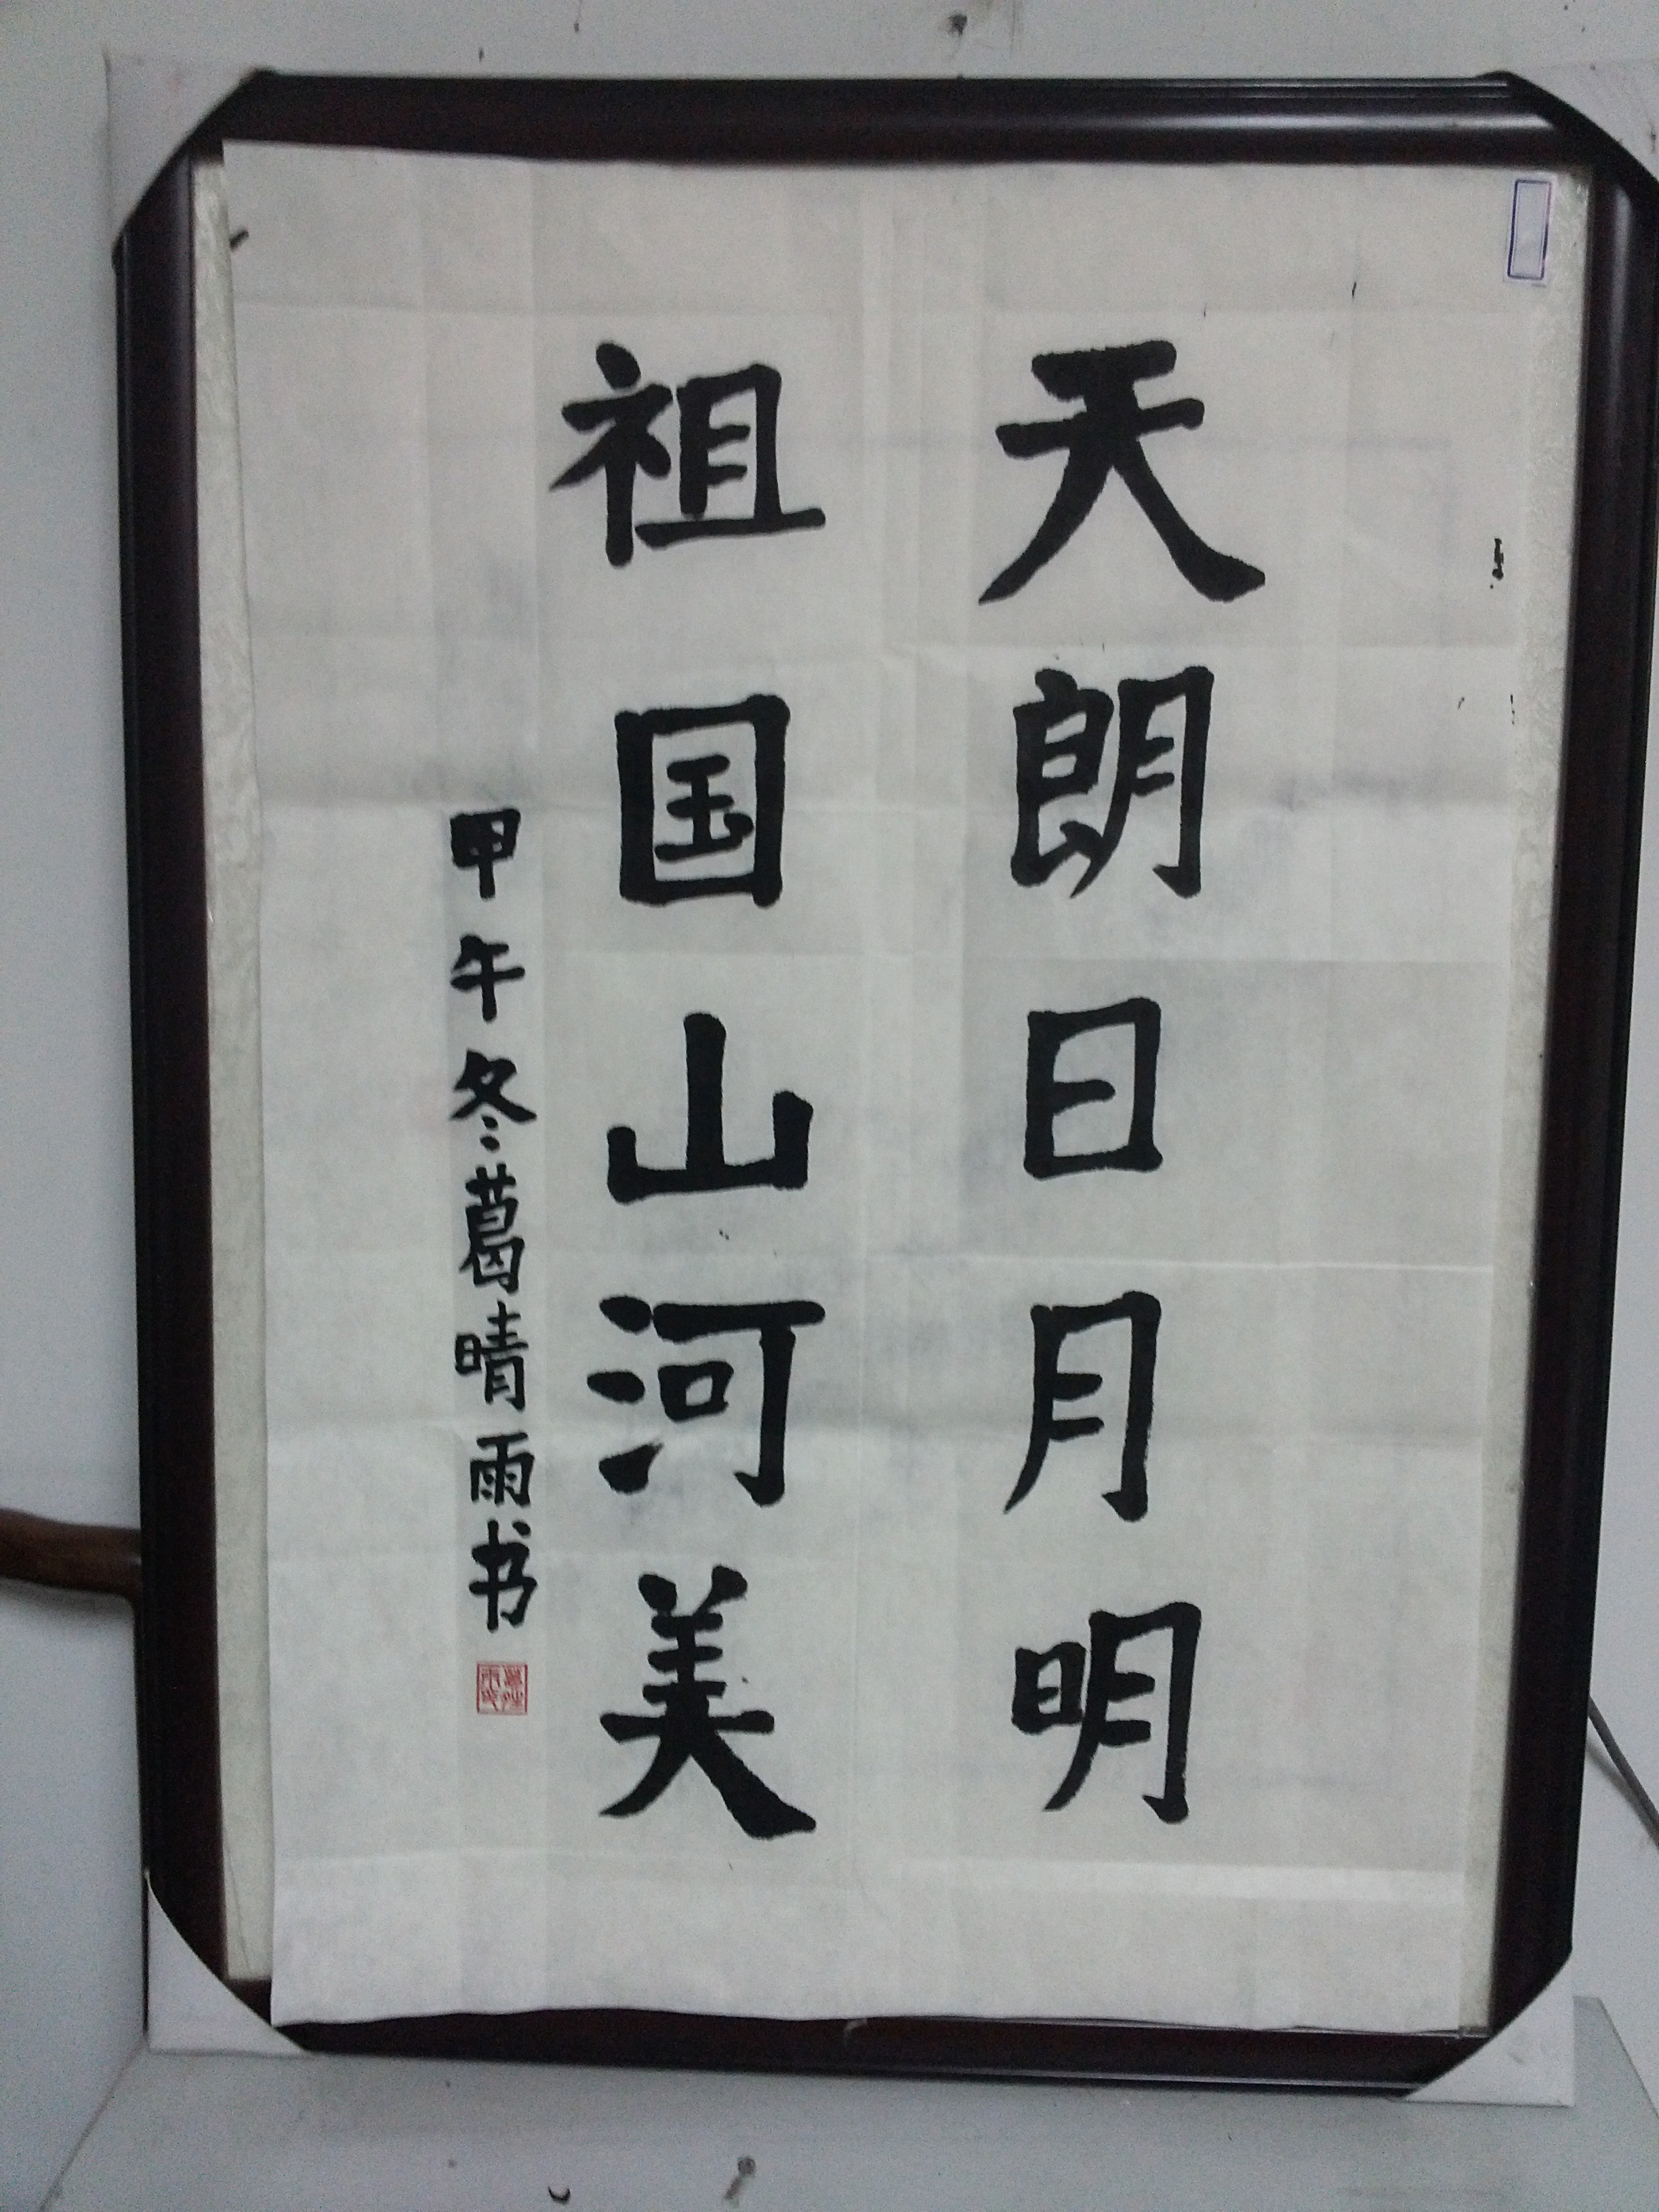 天朗日月明
祖国山河美
甲午冬葛晴雨书